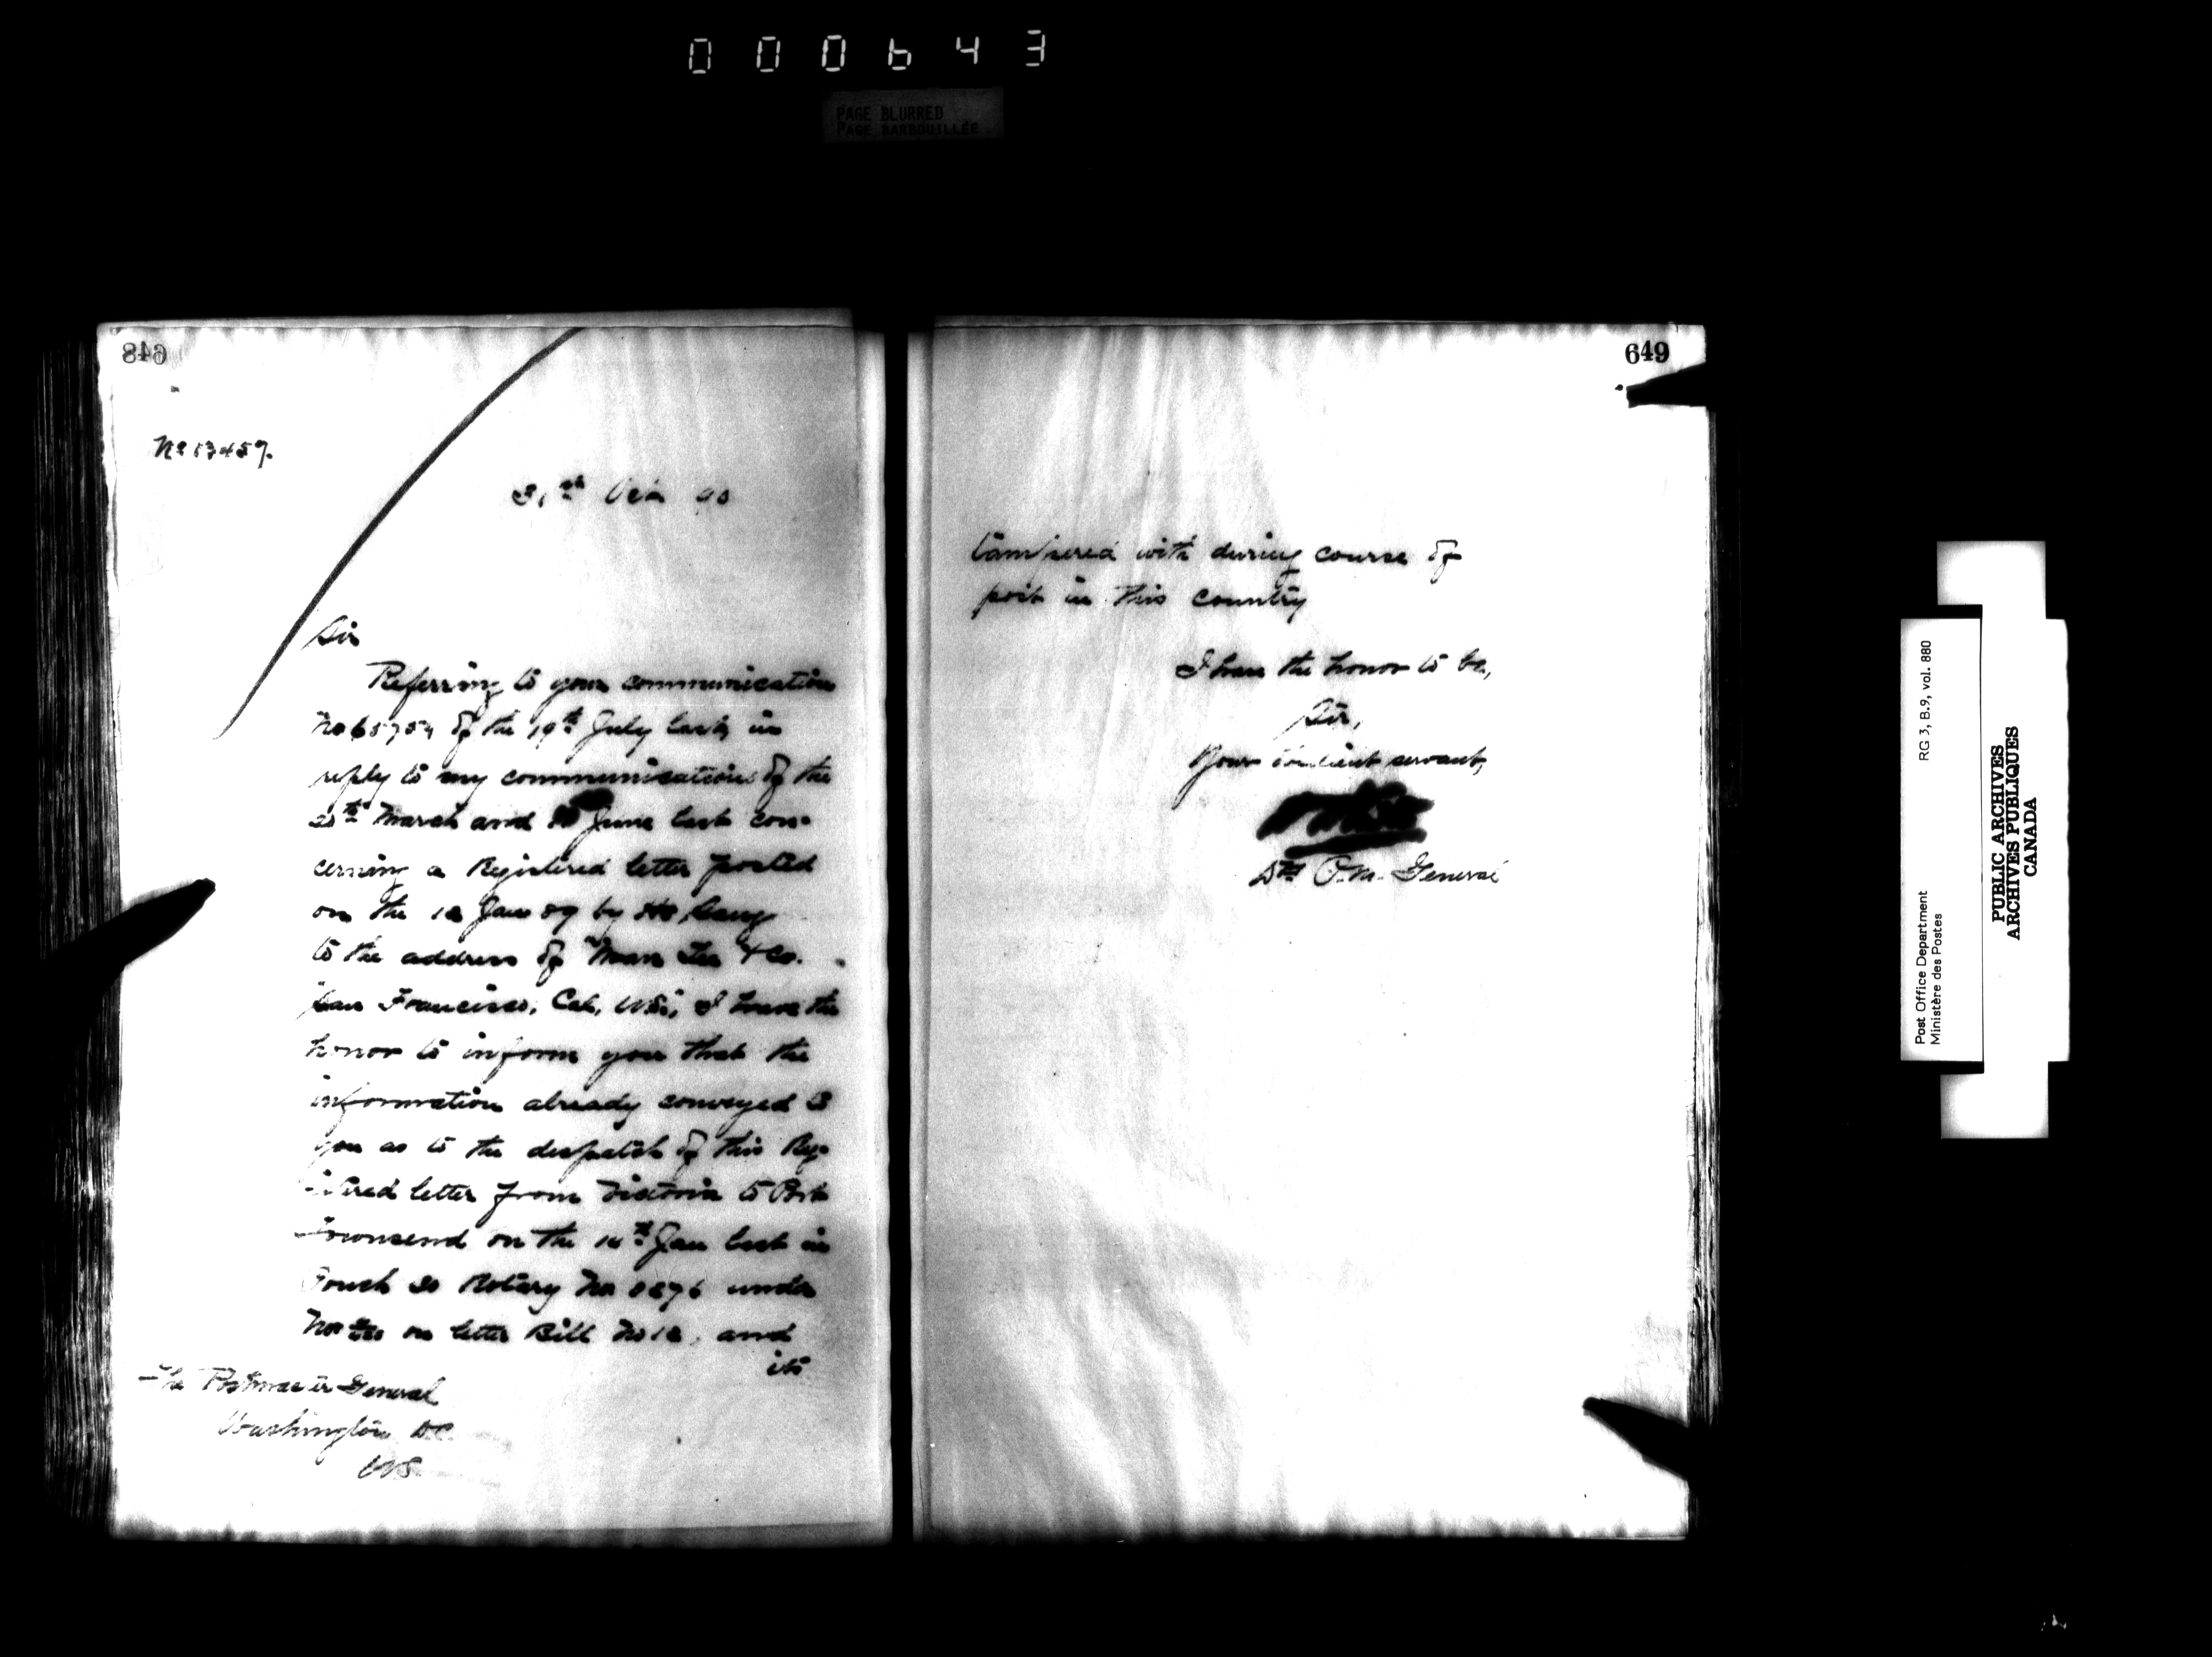 000643
PAGE BLURRED
PAGE BARBOUILLÉE
648
No 13459.
31st Oct 90
Sir
Referring to your communication
No 65754 of the 19th July last, in
reply to my communications of the
20th March and June last con-
cerning a Registered letter posted
on the 12 Jan 89 by
to the address of Man & Co.
San Francisco, Cal, US, I have the
honor to inform you that the
information already conveyed to
you as to the despatch of this Reg-
istered letter from Victoria to Port
Townsend on the 14th Jan last in
Pouch 20 Rotary No 8276 under
No on letter Bill No 12, and
its
The Postmaster General
Washington DC
US
649
tampered with during course of
post in this country
I have the honor to be,
Sir,
Your obedient servant,
Dy P.M. General
Post Office Department
Ministère des Postes
RG 3, B.9, vol. 880
PUBLIC ARCHIVES
ARCHIVES PUBLIQUES
CANADA